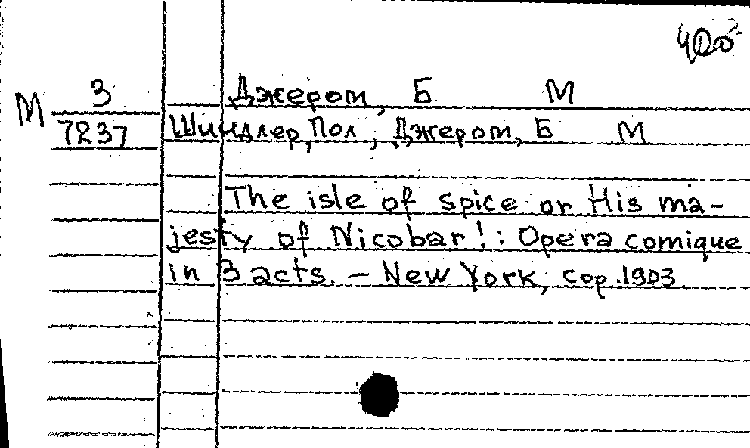 400²
М З Джером, Б М
7237 Шиндлер, Пол, Джером, Б М
The isle of spice or His ma-
jesty of Nicobar!: Opera comique
in 3 acts. – New York, cop. 1903